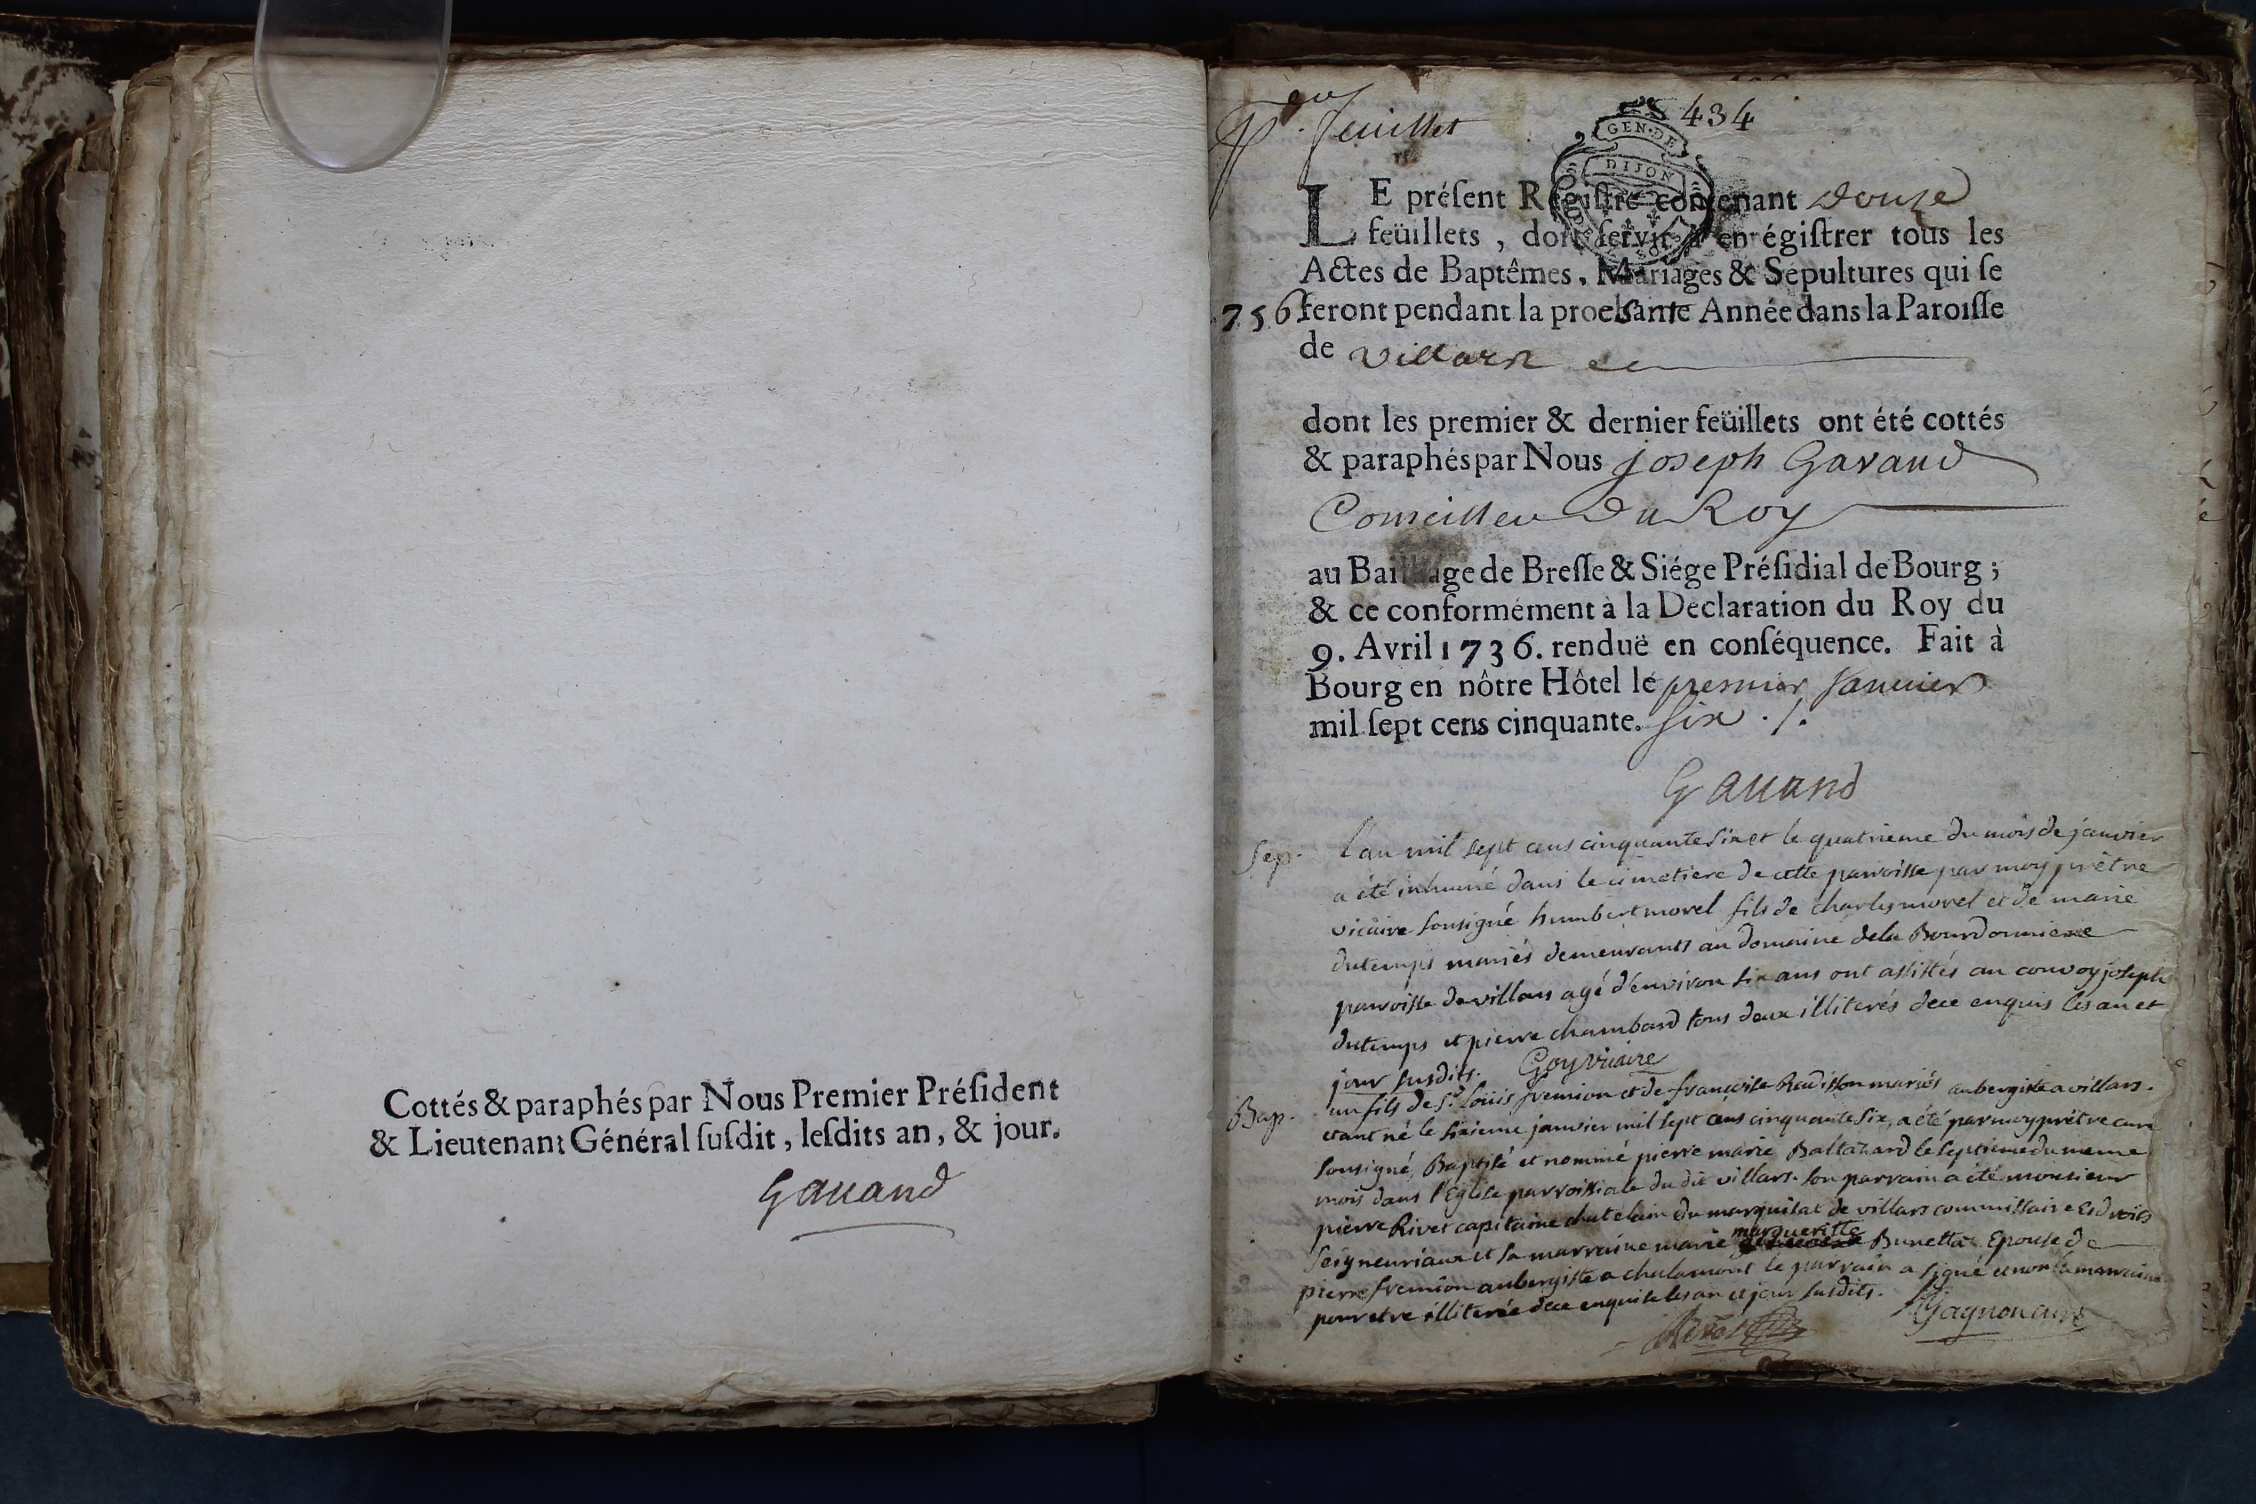 Cottés & paraphés par Nous Premier Préſident
& Lieutenant Général ſuſdit, leſdits an, & jour.
Gauand
Per. feuillet
434
GEN. DE
DIJON
LE préſent Regiſtre contenant Douze
feüillets, doit ſervir à enrégiſtrer tous les
Actes de Baptêmes, Mariages & Sépultures qui ſe
756 feront pendant la Année dans la Paroiſſe
de villars
dont les premier & dernier feüillets ont été cottés
& paraphés par Nous joseph Gavand
Conseiller du Roy
au Bailliage de Breſſe & Siége Préſidial de Bourg;
& ce conformément à la Déclaration du Roy du
9. Avril 1736. renduë en conſéquence. Fait à
Bourg en nôtre Hôtel le premier Januier
mil ſept cens cinquante. six ./.
Gauand
Sep. Lan mil sept cens cinquante six et le quatrieme du mois de janvier
a été inhumé dans le cimetiere de cette parroisse par moy prêtre
vicaire sousigné humbert morel fils de charles morel et de marie
dutemps mariés demeurants au domaine dela Bourdonniere
parroisse de villars agé d'environ six ans ont assistés au convoy joseph
dutemps et pierre chambard tous deux illiterés de ce enquis les an et
jour susdits. Goy vicaire
Bap. un fils de Sr. Loüis fremion et de françoise mariés aubergiste a villars.
etant né le sixieme janvier mil sept cens cinquante six, a été par moy prêtre curé
sousigné, Baptisé et nommé pierre marie Baltazard le septieme du meme
mois dans l'Eglise parroissiale du dit villars. son parrain a été monsieur
pierre Rivet capitaine chatelain du marquisat de villars commissaire Es droits
seigneuriaux et sa marraine marie margueritte Epouse de
pierre fremion aubergiste a chalamont le parrain a signé et non la marraine
pour etre illiterée de ce enquise les an et jour susdits.
Rivet Gagnon curé